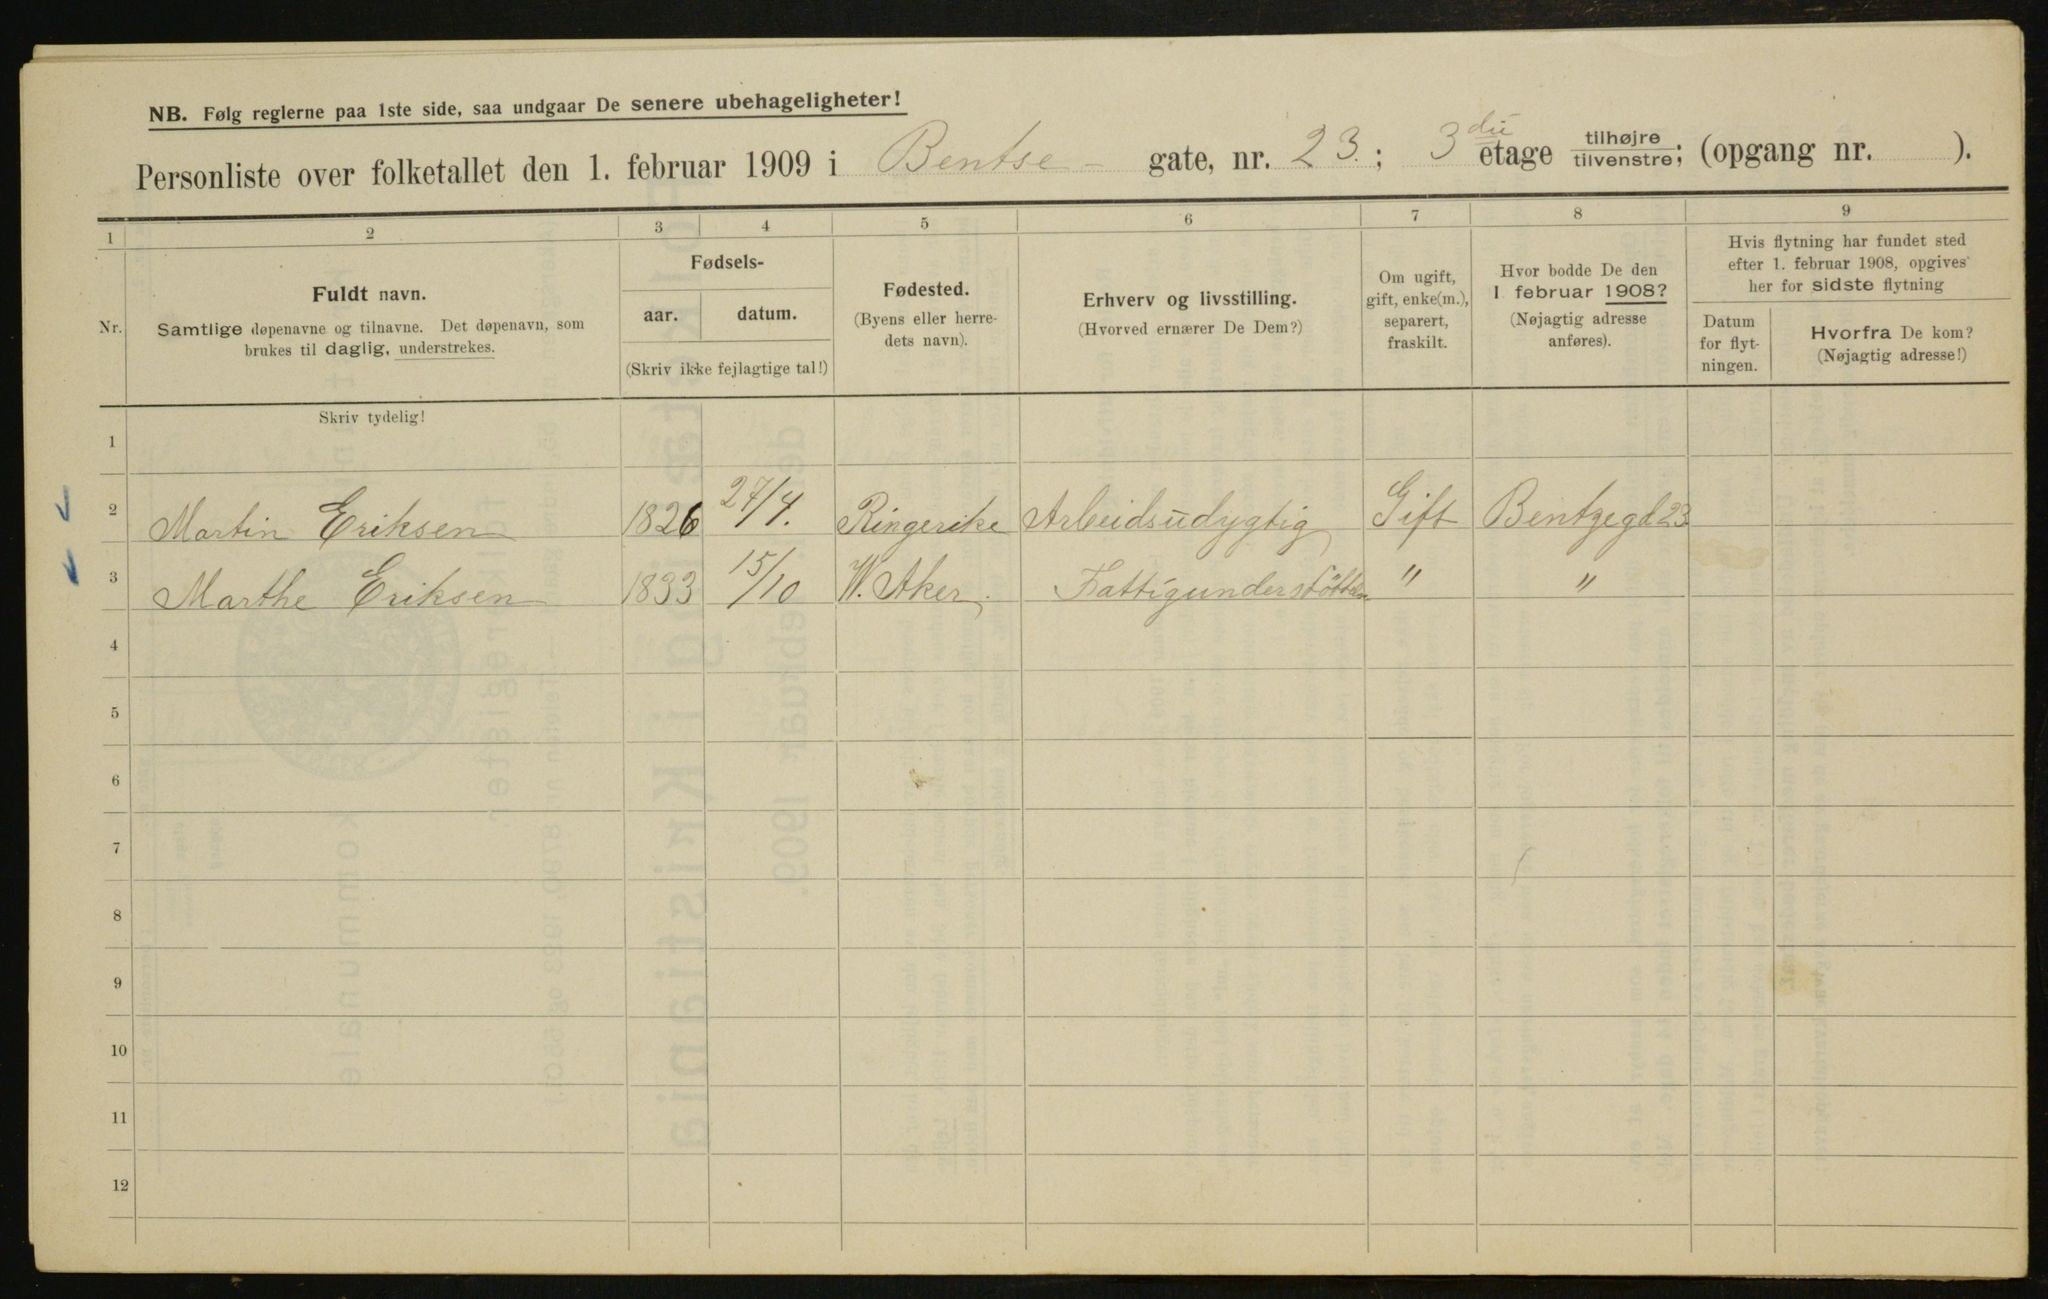 NB. Følg reglerne paa 1ste side, saa undgaar De senere ubehageligheter!
Personliste over folketallet den 1. februar 1909 i Bentse - gate, nr. 23. ; 3 die etage tilhøjre tilvenstre; (opgang nr. ).
1 2 3 4 5 6 7 8 9
Nr.
Fuldt navn.
Samtlige døpenavne og tilnavne. Det døpenavn, som
brukes til daglig, understrekes.
Fødsels-
aar. datum.
(Skriv ikke fejlagtige tal!)
Fødested.
(Byens eller herre-
dets navn).
Erhverv og livsstilling.
(Hvorved ernærer De Dem?)
Om ugift,
gift, enke(m.),
separert,
fraskilt.
Hvor bodde De den
1 februar 1908?
(Nøjagtig adresse
anføres).
Hvis flytning har fundet sted
efter 1. februar 1908, opgives
her for sidste flytning
Datum
for flyt-
ningen.
Hvorfra De kom?
(Nøjagtig adresse!)
Skriv tydelig!
1
2 Martin Eriksen 1826 Ringerike Arbeidsudygtig Gift Bentzegd 23
3 Marthe Eriksen 1833 15/10 W. Aker. " "
4
5
6
7
8
9
10
11
12